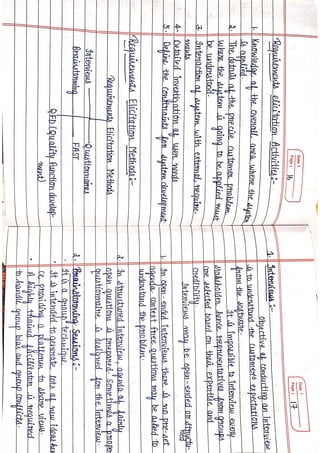 Date :
Page : 16
Requirements elicitation Activities :-
1. Knowledge of the overall area where the system
is applied.
2. The details of the precise customer problem
where the system is going to be applied must
be understood.
3. Interaction of system with external require-
ments
4. Detailed Investigation of user needs
5. Define the Constraints for system development
Requirements Elicitation Methods :-
Requirements Elicitation Methods
Interviews Questionnaires
Brainstorming FAST
QFD (Quality function develop-
ment)
Date :
Page : 17
1. Interviews :-
Objective of conducting an Interview
is to understand the customer's expectations
from the software.
It is impossible to Interview every
stakeholder hence representatives from groups
are selected based on their expertise and
credibility.
Interviews may be open-ended or structu-
red
1. In open-ended Interviews there is no pre-set
agenda. context free questions may be asked to
understand the problem.
2. In structured Interview, agenda of fairly
open questions is prepared. Sometimes a proper
questionnaire is designed for the Interview.
2. Brainstorming Sessions :-
• It is a group technique
• It is intended to generate lots of new ideas hen
ce providing a platform to share views
• A highly trained facilitator is required
to handle group bias and group conflicts.